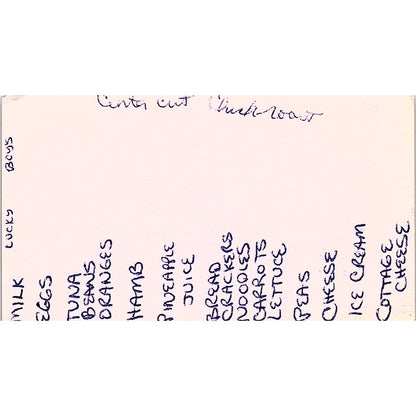 Center cut Chuck roast
LUCKY BOYS
MILK
EGGS
TUNA
BEANS
ORANGES
HAMB
PINEAPPLE
JUICE
BREAD
CRACKERS
NOODLES
CARROTS
LETTUCE
PEAS
CHEESE
ICE CREAM
COTTAGE
CHEESE